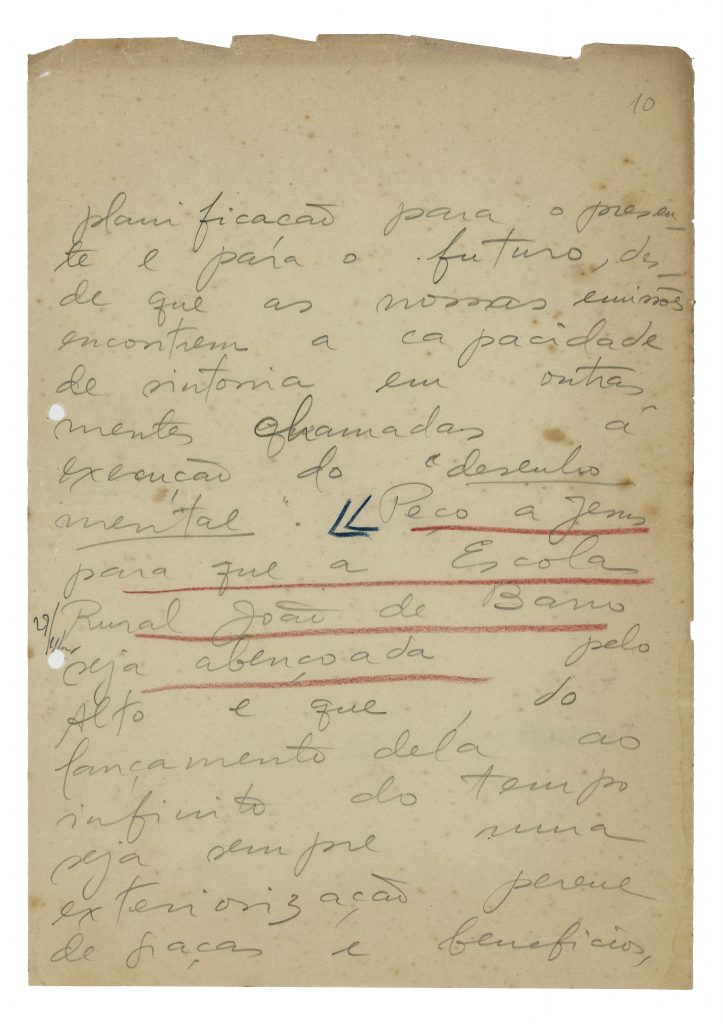 10
planificacão para o presen-
te e pára o futuro, des-
de que as nossas emissões
encontrem a capacidade
de sintonia em outras
mentes chamadas á
execução do "desenho
mental". Peço a Jesus
para que a Escola
Rural João de Barro
seja abençoada pelo
Alto e que, do
lançamento dela ao
infinito do tempo
seja sempre uma
exteriorização perene
de graças e beneficios,